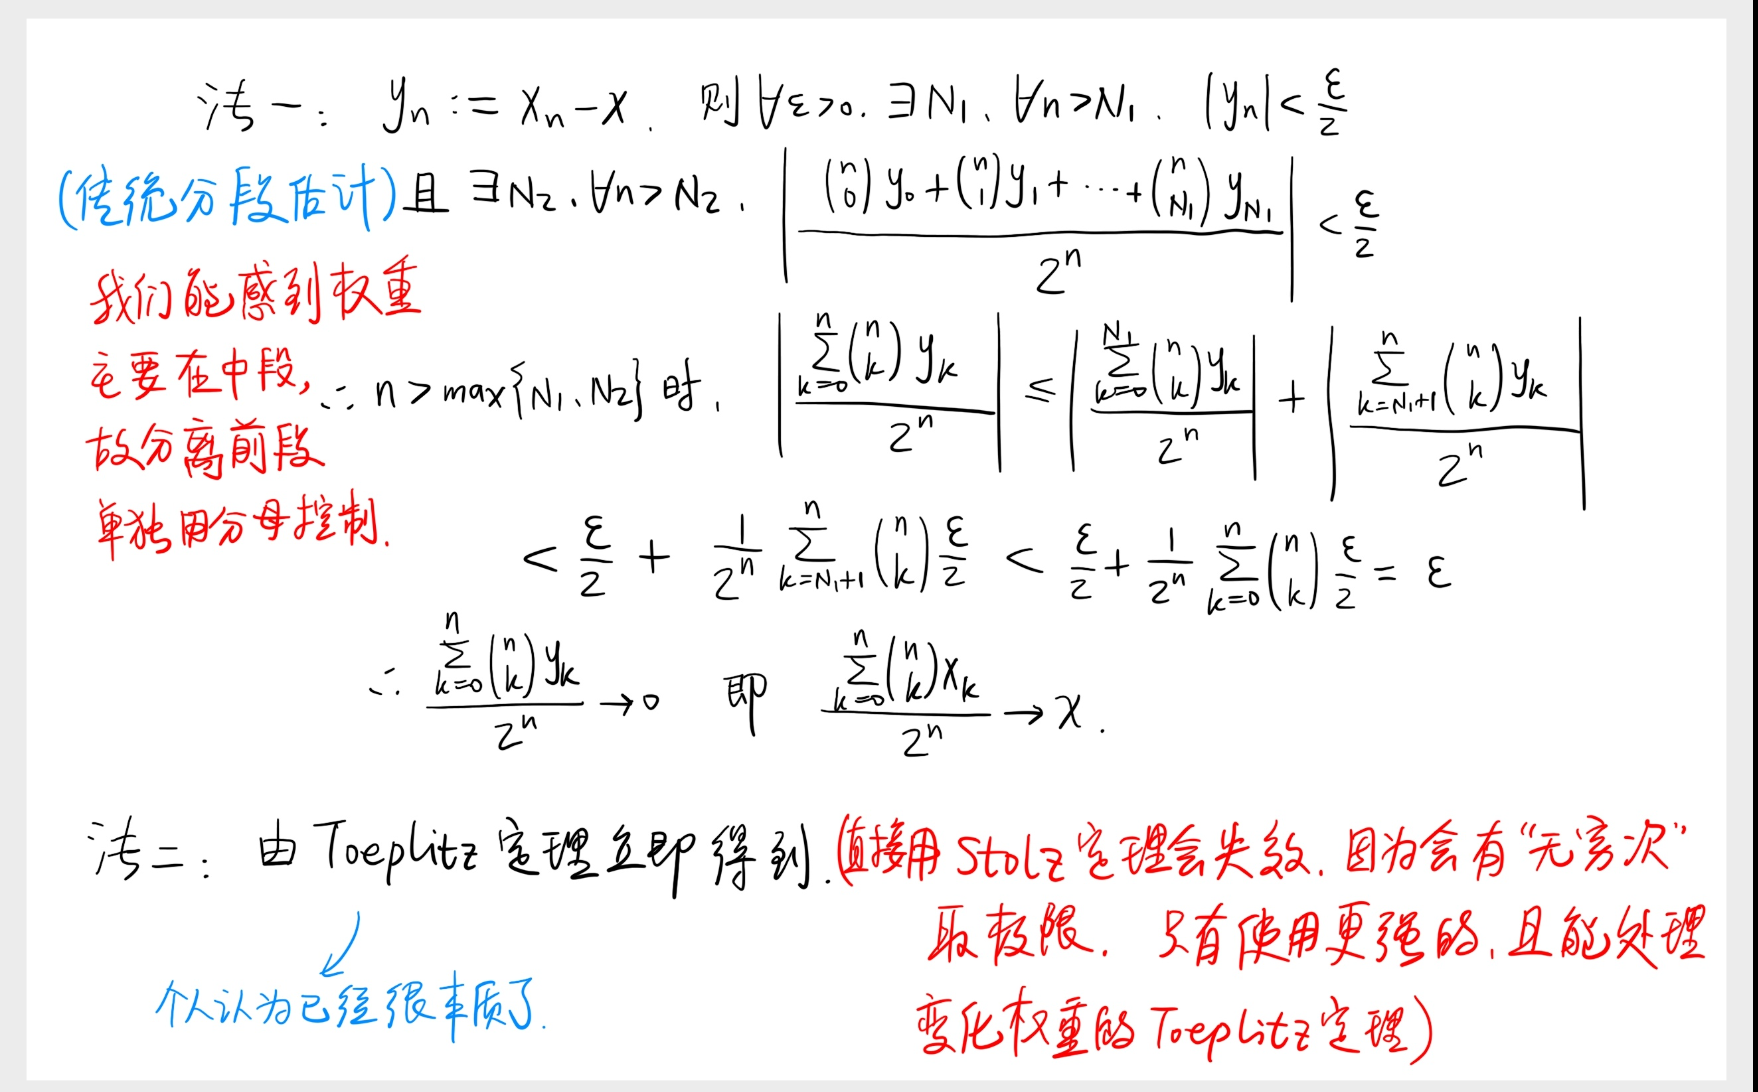 法一: yₙ := xₙ - x. 则 ∀ε>0. ∃N₁、∀n>N₁. |yₙ| < ε/2
(传统分段估计) 且 ∃N₂、∀n>N₂. |(C(n,0) y₀ + C(n,1) y₁ + ⋯ + C(n,N₁) y_{N₁}) / 2ⁿ| < ε/2
我们能感到权重
主要在中段,
故分离前段
单独用分母控制.
∴ n > max{N₁、N₂} 时, |∑_{k=0}^{n} C(n,k) y_k / 2ⁿ| ≤ |∑_{k=0}^{N₁} C(n,k) y_k / 2ⁿ| + |∑_{k=N₁+1}^{n} C(n,k) y_k / 2ⁿ|
< ε/2 + 1/2ⁿ ∑_{k=N₁+1}^{n} C(n,k) ε/2 < ε/2 + 1/2ⁿ ∑_{k=0}^{n} C(n,k) ε/2 = ε
∴ ∑_{k=0}^{n} C(n,k) y_k / 2ⁿ → 0 即 ∑_{k=0}^{n} C(n,k) x_k / 2ⁿ → x.
法二: 由 Toeplitz 定理立即得到. (直接用 Stolz 定理会失效. 因为会有“无穷次”
取极限. 只有使用更强的, 且能处理
变化权重的 Toeplitz 定理)
个人认为已经很本质了.